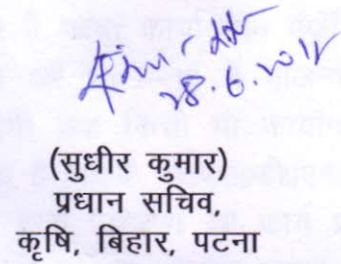 28.6.2012
(सुधीर कुमार)
प्रधान सचिव,
कृषि, बिहार, पटना